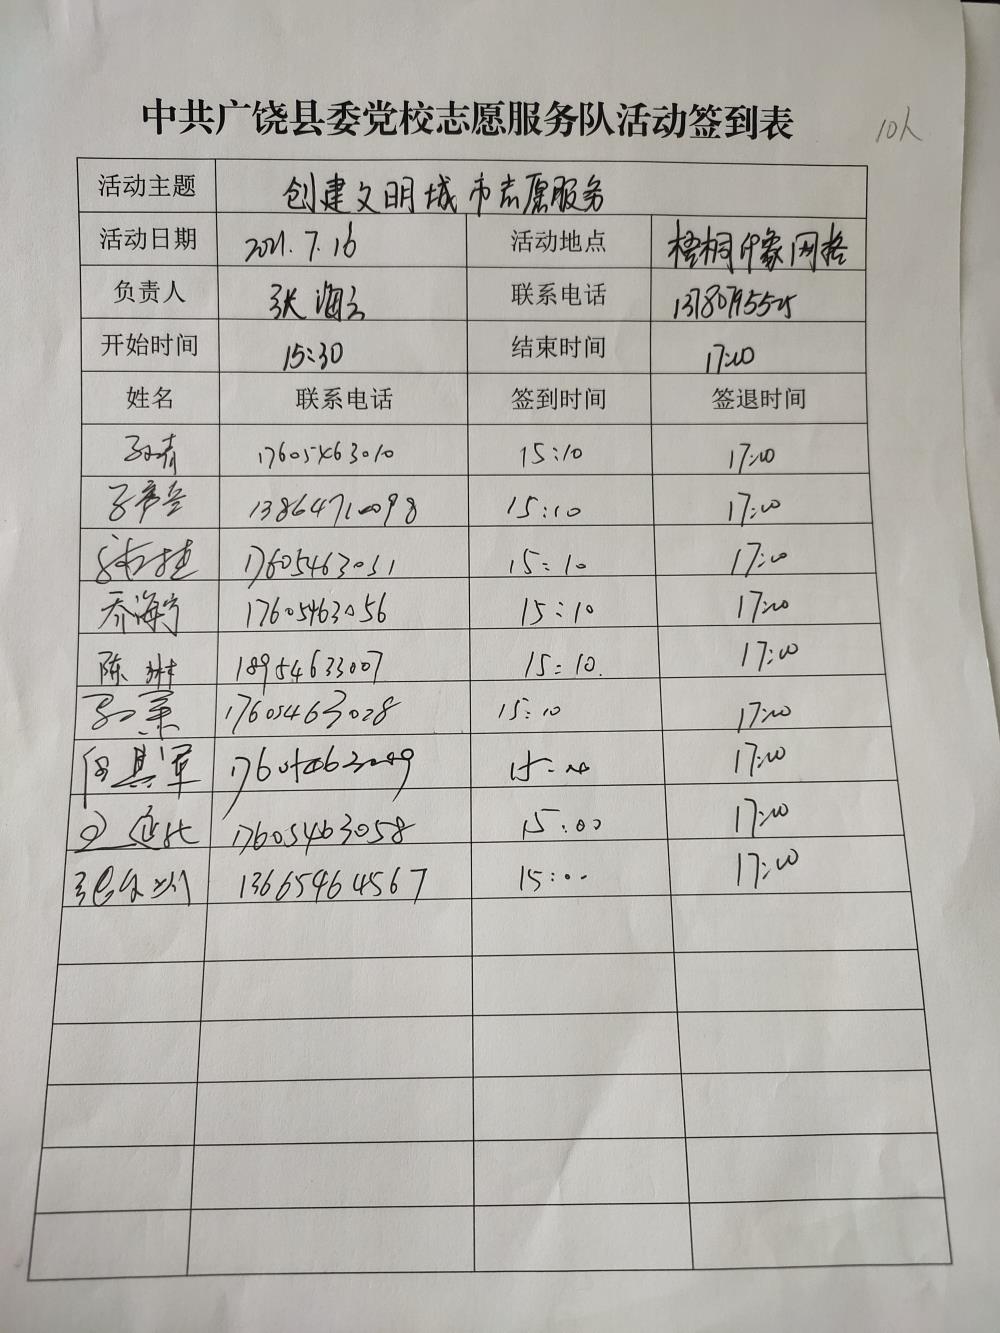 中共广饶县委党校志愿服务队活动签到表
10人
活动主题 创建文明城市志愿服务
活动日期 2021.7.16 活动地点 梧桐印象网格
负责人 张海 联系电话
开始时间 15:30 结束时间 17:10
姓名 联系电话 签到时间 签退时间
17605463010 15:10 17:10
13864710098 15:10 17:10
17605463031 15:10 17:10
乔海宁 17605463056 15:10 17:10
陈琳 18954633007 15:10. 17:10
17605463028 15:10 17:10
17605463049 15:00 17:10
17605463058 15:00 17:10
13665464567 15:00 17:10